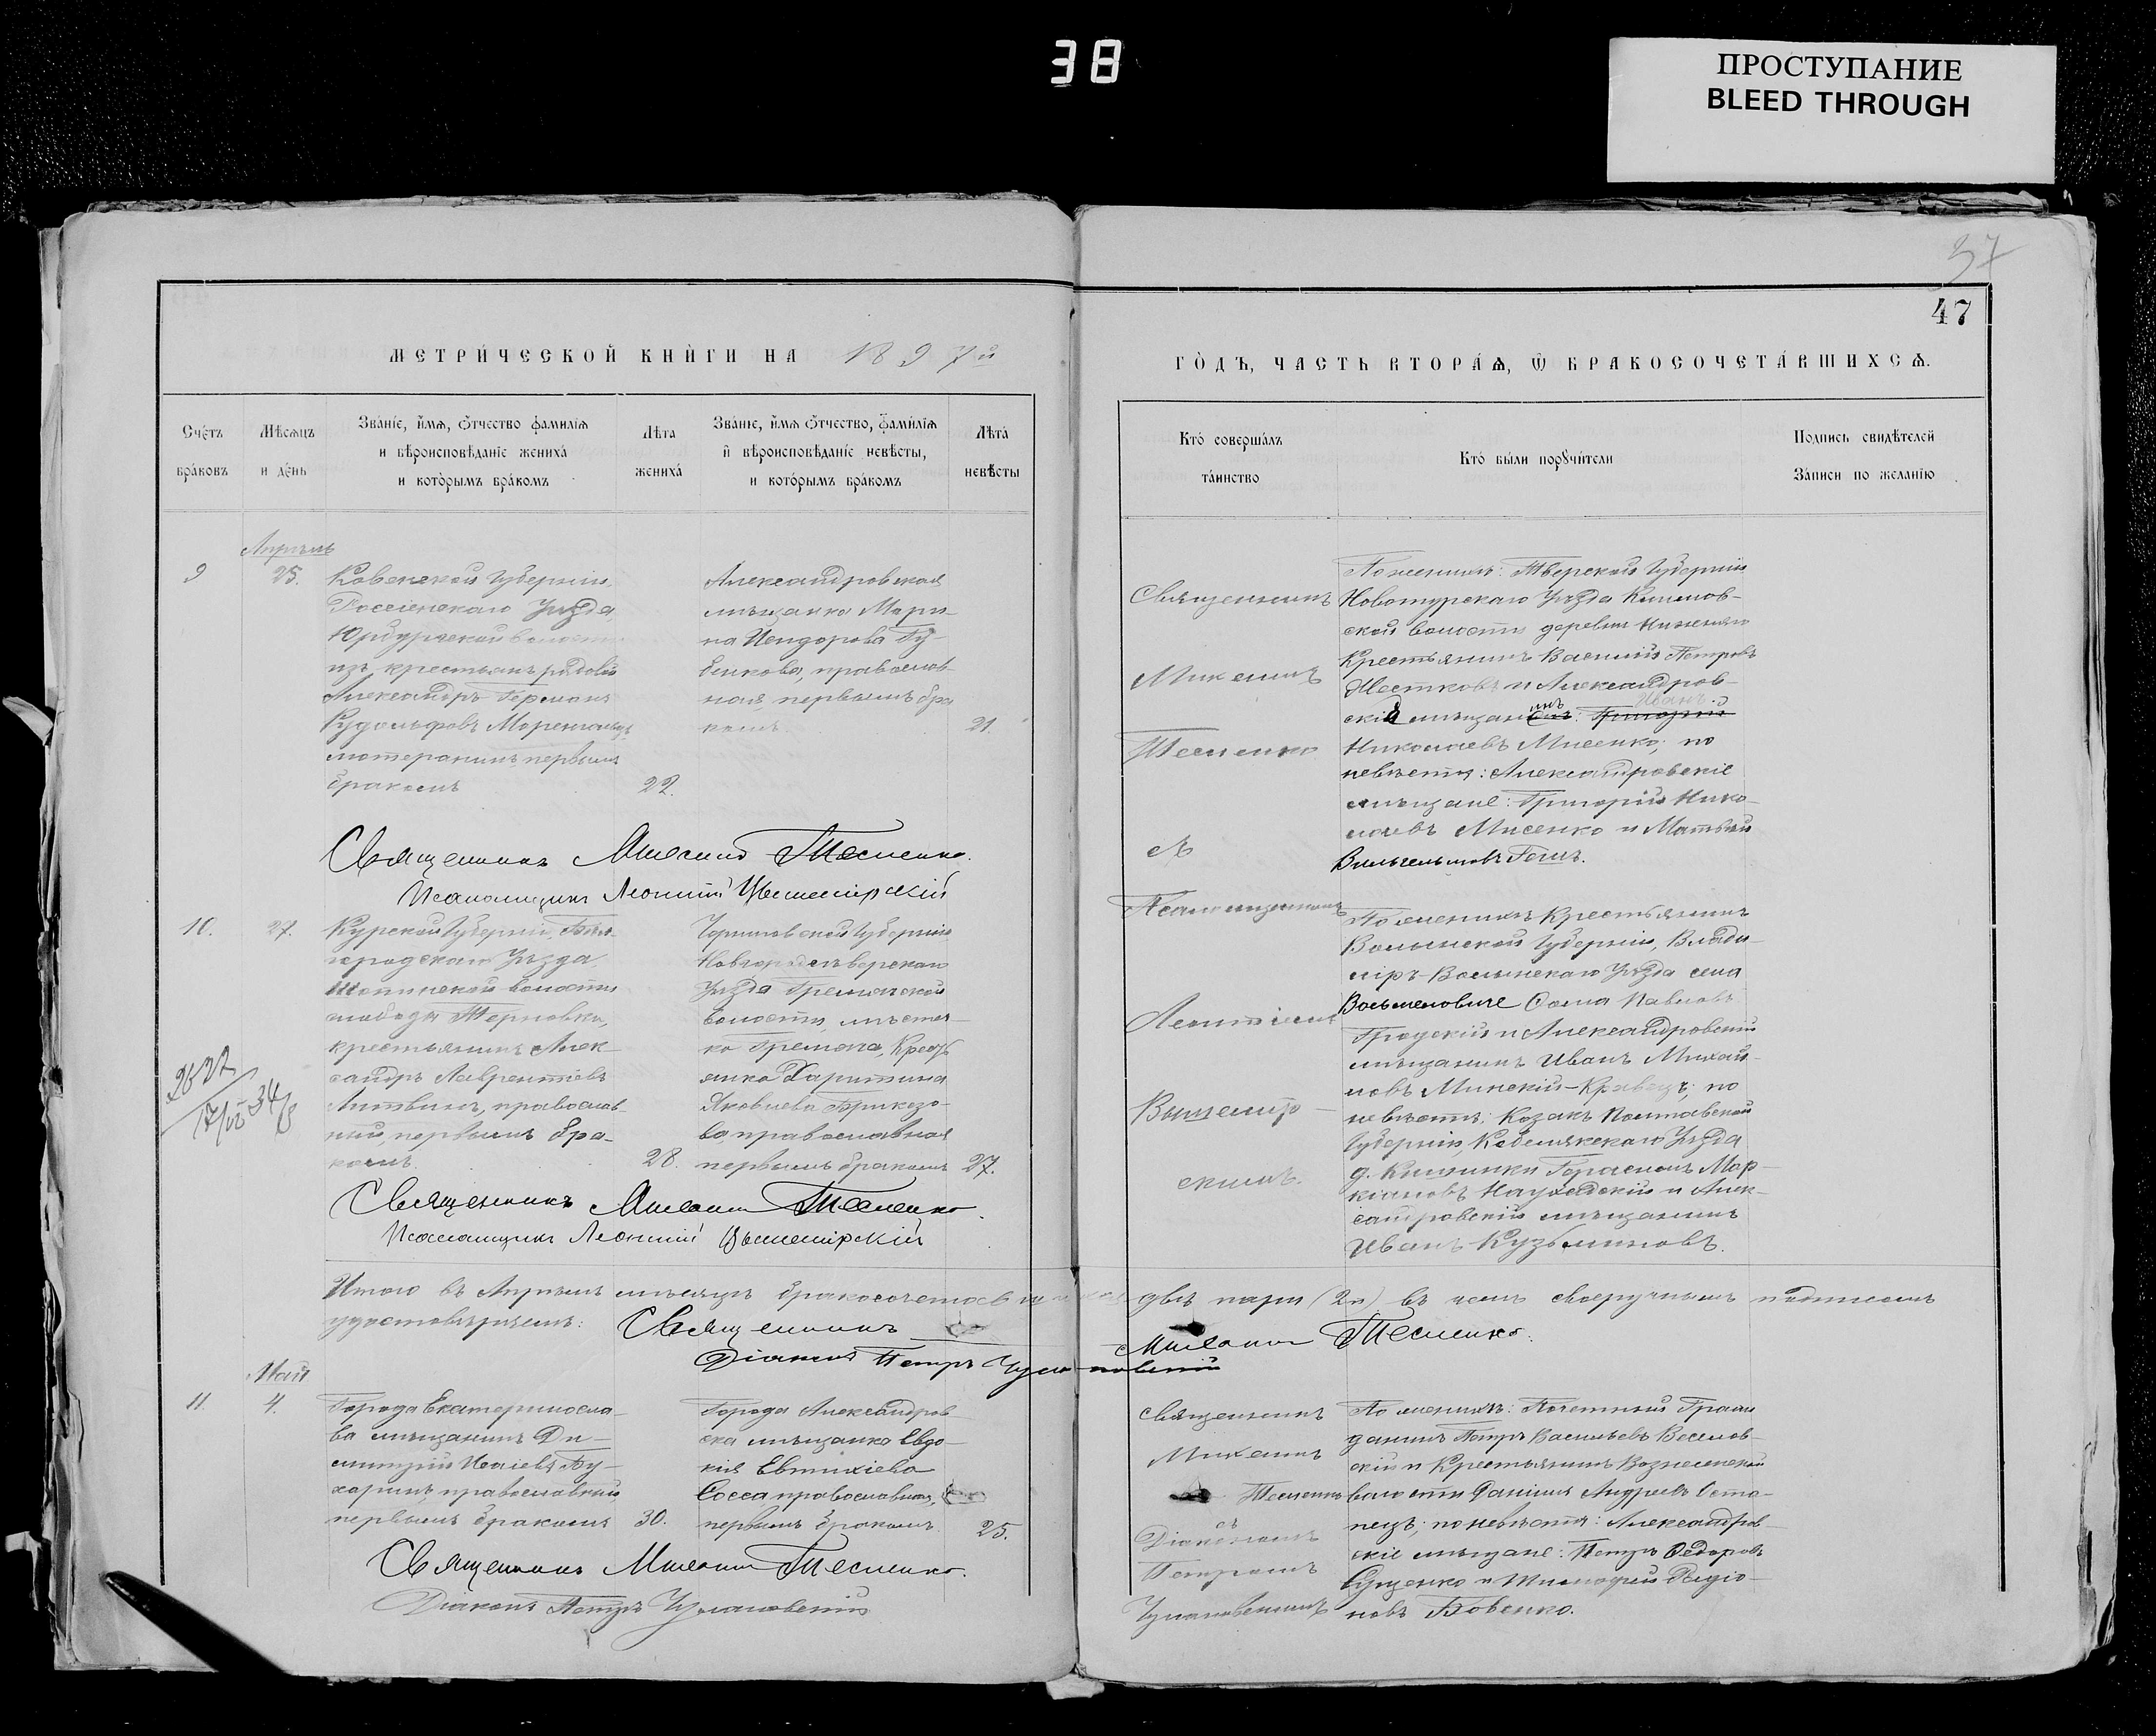 38
ПРОСТУПАНИЕ
BLEED THROUGH
37
47
МЕТРИ́ЧЕСКОЙ КНИ́ГИ НА 1897й
ГО́ДЪ, ЧАСТЬ ВТОРА́Ѧ, Ѿ БРАКОСОЧЕТА́ВШИХСѦ.
Сче́тъ бра́ковъ
Мѣ́сѧцъ и де́нь
Зва́нїе, и́мѧ, ѻ́тчество фамилїѧ и вѣроисповѣ́данїе жениха́ и кото́рымъ бра́комъ
Лѣ́та жениха́
Зва́нїе, и́мѧ ѻ́тчество, фами́лїѧ и вѣроисповѣ́данїе невѣ́сты, и кото́рымъ бра́комъ
Лѣ́та невѣ́сты
Кто́ соверша́лъ та́инство
Кто́ бы́ли порꙋчи́тели
Подпись свидѣ́телей За́писи по желанїю
Апрѣль
9
25.
Ковенской Губерніи,
Россіенскаго Уѣзда,
волости
изъ крестьянъ рядовой
Александръ Германъ
Рудольфовъ
лютеранинъ, первымъ
бракомъ
22.
Александровская
мѣщанка Мари-
на
православ-
ная, первымъ бра
комъ
21.
Священникъ
Михаилъ
Тесленко
съ
Псаломщикомъ
Леонтіемъ
Вышемір-
скимъ.
По женихѣ: Тверской Губерніи
Новоторскаго Уѣзда
ской волости деревни
Крестьянинъ Василій Петровъ
Шестковъ и Александров-
скій мѣщанинъ: Иванъ
Николаевъ Мисенко; по
невѣстѣ: Александровскіе
мѣщане: Григорій Нико-
лаевъ Мисенко и Матвѣй
Вильгельмовъ
Священникъ Михаилъ Тесленко.
Псаломщикъ Леонтій Вышемірскій
10.
27.
Курской Губерніи, Бѣл-
городскаго Уѣзда
волости
слободы Терновки,
крестьянинъ Алек-
сандръ Лаврентіевъ
Литвинъ, православ-
ный, первымъ бра-
комъ.
28.
Черниговской Губерніи
Новгородсѣверскаго
Уѣзда Гремячской
волости, мѣстеч-
ко Гремяча, Крест
янка Харитина
Яковлева
ва православная
первымъ бракомъ
27.
По женихѣ Крестьянинъ
Волынской Губерніи, Влади-
міръ-Волынскаго Уѣзда села
Ѳома Павловъ
Гродскій и Александровскій
мѣщанинъ Иванъ Михай-
ловъ Минскій-Кравецъ; по
невѣстѣ: Козакъ Полтавской
Губерніи, Кобелякскаго Уѣзда
д. Кишинки Герасимъ Мар-
кіановъ и Алек-
сандровскій мѣщанинъ
Иванъ Кузьминовъ.
Священникъ Михаилъ Тесленко.
Псаломщикъ Леонтій Вышемірскій
Итого въ Апрѣлѣ мѣсяцѣ бракосочетавшихся двѣ пары (2п) въ чемъ своеручнымъ подписомъ
удостовѣряемъ: Священникъ Михаилъ Тесленко.
Діаконъ Петръ
Май
11.
4.
Города Екатериносла-
ва мѣщанинъ Ди-
митрій Исаіевъ Бу-
харинъ, православный
первымъ бракомъ
30.
Города Александров-
ска мѣщанка Евдо-
кія Евтихіева
Сосса православная,
первымъ бракомъ
25.
Священникъ
Михаилъ
Тесленко
съ
Діакономъ
Петромъ
По женихѣ: Почетный Граж
данинъ Петръ Васильевъ Веселов-
скій и Крестьянинъ Вознесенской
волости Даніилъ Андреевъ Оста-
пецъ; по невѣстѣ: Александров-
скіе мѣщане: Петръ Ѳедоровъ
Сущенко и Тимофей Родіо-
новъ Бовенко.
Священникъ Михаилъ Тесленко.
Діаконъ Петръ